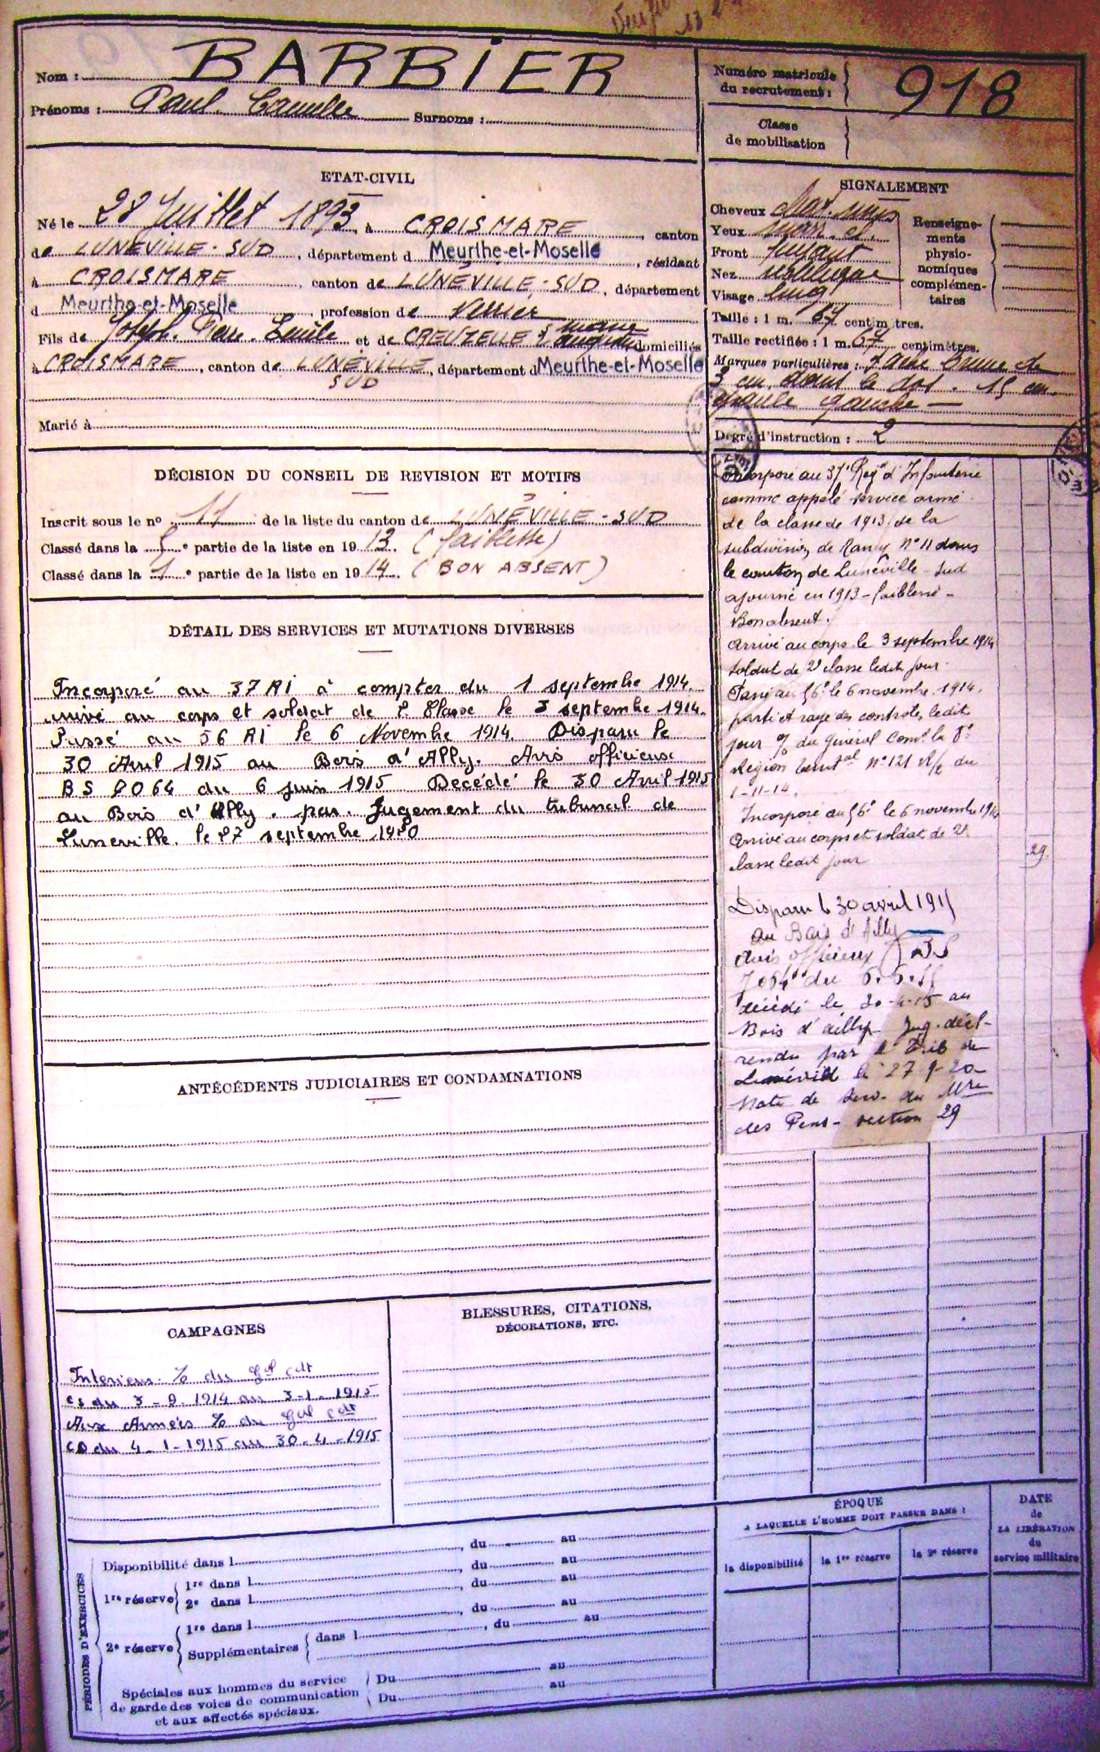 Nom : BARBIER
Prénoms : Paul Camille Surnoms :
Numéro matricule
du recrutement : 918
Classe
de mobilisation
ETAT-CIVIL
Né le 28 Juillet 1893, à CROISMARE, canton
de LUNÉVILLE-SUD, département d Meurthe-et-Moselle, résidant
à CROISMARE, canton de LUNÉVILLE-SUD, département
d Meurthe-et-Moselle, profession de verrier
Fils de Joseph Emile et de CREUZELLE marie domiciliés
à CROISMARE, canton de LUNÉVILLE, département d Meurthe-et-Moselle
SUD
Marié à
SIGNALEMENT
Cheveux chat.
Yeux
Front fuyant
Nez
Visage long
Renseigne-
ments
physio-
nomiques
complémen-
taires
Taille : 1 m. 67 centimètres.
Taille rectifiée : 1 m. 67 centimètres.
Marques particulières : tache brune de
3 cm. dans le dos. 15 cm.
épaule gauche
Degré d'instruction : 2
DÉCISION DU CONSEIL DE REVISION ET MOTIFS
Inscrit sous le n° 11 de la liste du canton de LUNÉVILLE-SUD
Classé dans la 5e partie de la liste en 1913. (faiblesse)
Classé dans la 1e partie de la liste en 1914. (BON ABSENT)
DÉTAIL DES SERVICES ET MUTATIONS DIVERSES
Incorporé au 37 RI à compter du 1 septembre 1914.
arrivé au corps et soldat de 2 Classe le 3 septembre 1914.
Passé au 56 RI le 6 Novembre 1914. Disparu le
30 Avril 1915 au Bois d'Ailly. Avis officieux
BS 7064 du 6 juin 1915 Decédé le 30 Avril 1915
au Bois d'Ailly. par Jugement du tribunal de
Luneville. le 27 septembre 1920
Incorporé au 37e Regt d'Infanterie
comme appelé service armé
de la classe de 1913, de la
subdivision de Nancy N° 11 dans
le canton de Lunéville-Sud
ajourné en 1913 - faiblesse -
Bon absent.
Arrivé au corps le 3 septembre 1914
soldat de 2e classe ledit jour.
Passé au 56e le 6 novembre 1914.
parti et rayé des controles ledit
jour % du Général Comt la 8e
Région N° 121 du
1-11-14.
Incorporé au 56e le 6 novembre 1914
Arrivé au corps et soldat de 2e
classe ledit jour
29
Disparu le 30 avril 1915
au Bois d'Ailly
avis officieux BS
7064 du 6.6.15
décédé le 30-4-15 au
Bois d'Ailly. Jug. décl.
rendu par le Trib de
Lunéville le 27-9-20
Note de serv. du Mre
des Pens - section 29
ANTÉCÉDENTS JUDICIAIRES ET CONDAMNATIONS
CAMPAGNES
Intérieur % du Gal cdt
du 3-9-1914 au 3-1-1915
Aux Armées % du Gal cdt
du 4-1-1915 au 30-4-1915
BLESSURES, CITATIONS,
DÉCORATIONS, ETC.
PÉRIODES D'EXERCICES
Disponibilité dans l , du au
1re réserve 1re dans l , du au
2e dans l , du au
2e réserve 1re dans l , du au
Supplémentaires dans l , du au
Spéciales aux hommes du service
de garde des voies de communication
et aux affectés spéciaux.
Du au
Du au
ÉPOQUE
A LAQUELLE L'HOMME DOIT PASSER DANS :
la disponibilité
la 1re réserve
la 2e réserve
DATE
de
LA LIBÉRATION
du
service militaire